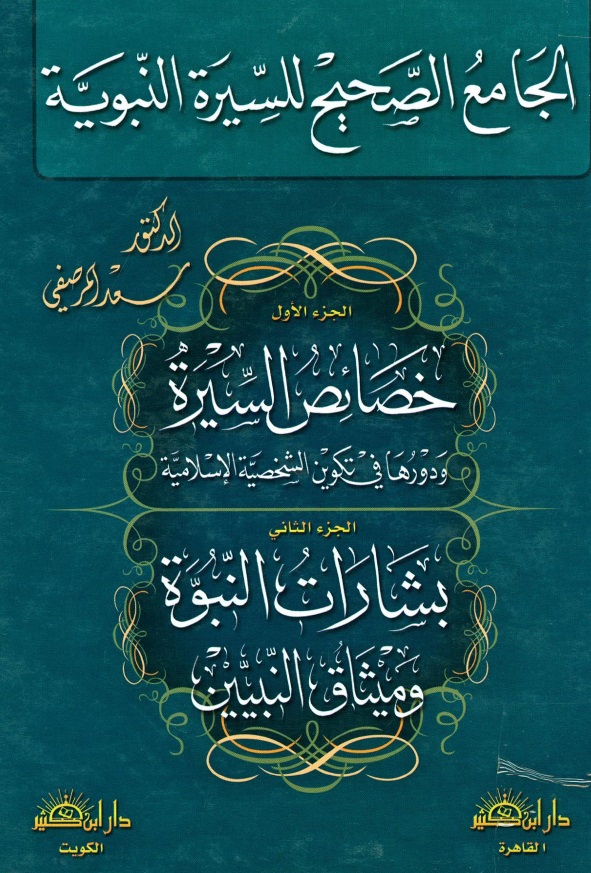 الجَامعُ الصَّحيْح للسِّيرَة النّبويَّة
الدكتور
سعد المرصفي
الجزء الأول
خصَائِصُ السِّيْرَةُ
وَدَورُهَا في تكوين الشخصيَّة الإسلاميَّة
الجزء الثاني
بشَارَاتُ النّبُوَّة
وَميْثَاق النَّبِيِّيْن
دار ابن كثير
القاهرة
دار ابن كثير
الكويت